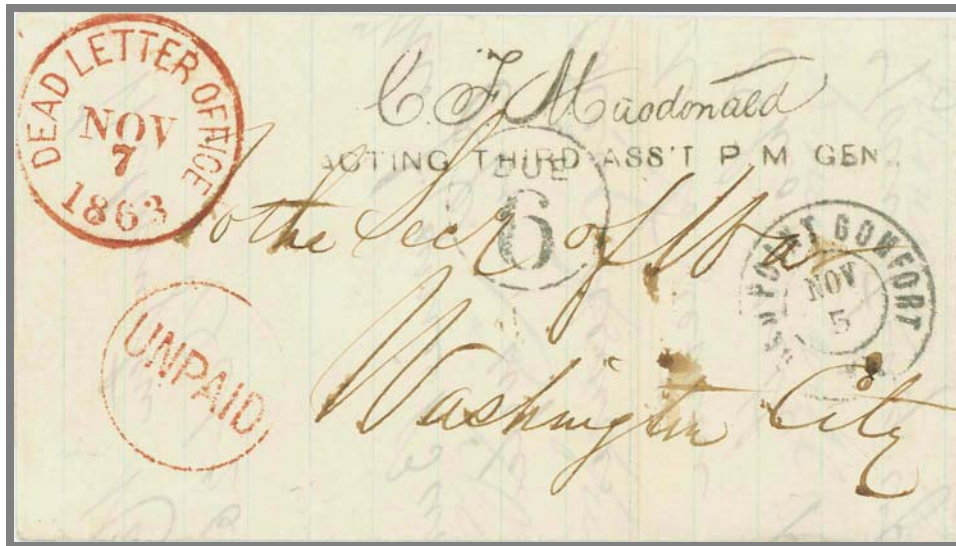 DEAD LETTER OFFICE
NOV
7
1863
C. F. Macdonald
ACTING THIRD ASS'T P M GEN.
DUE
6
To the Secy of War
Washington City
POINT COMFORT
NOV
5
UNPAID